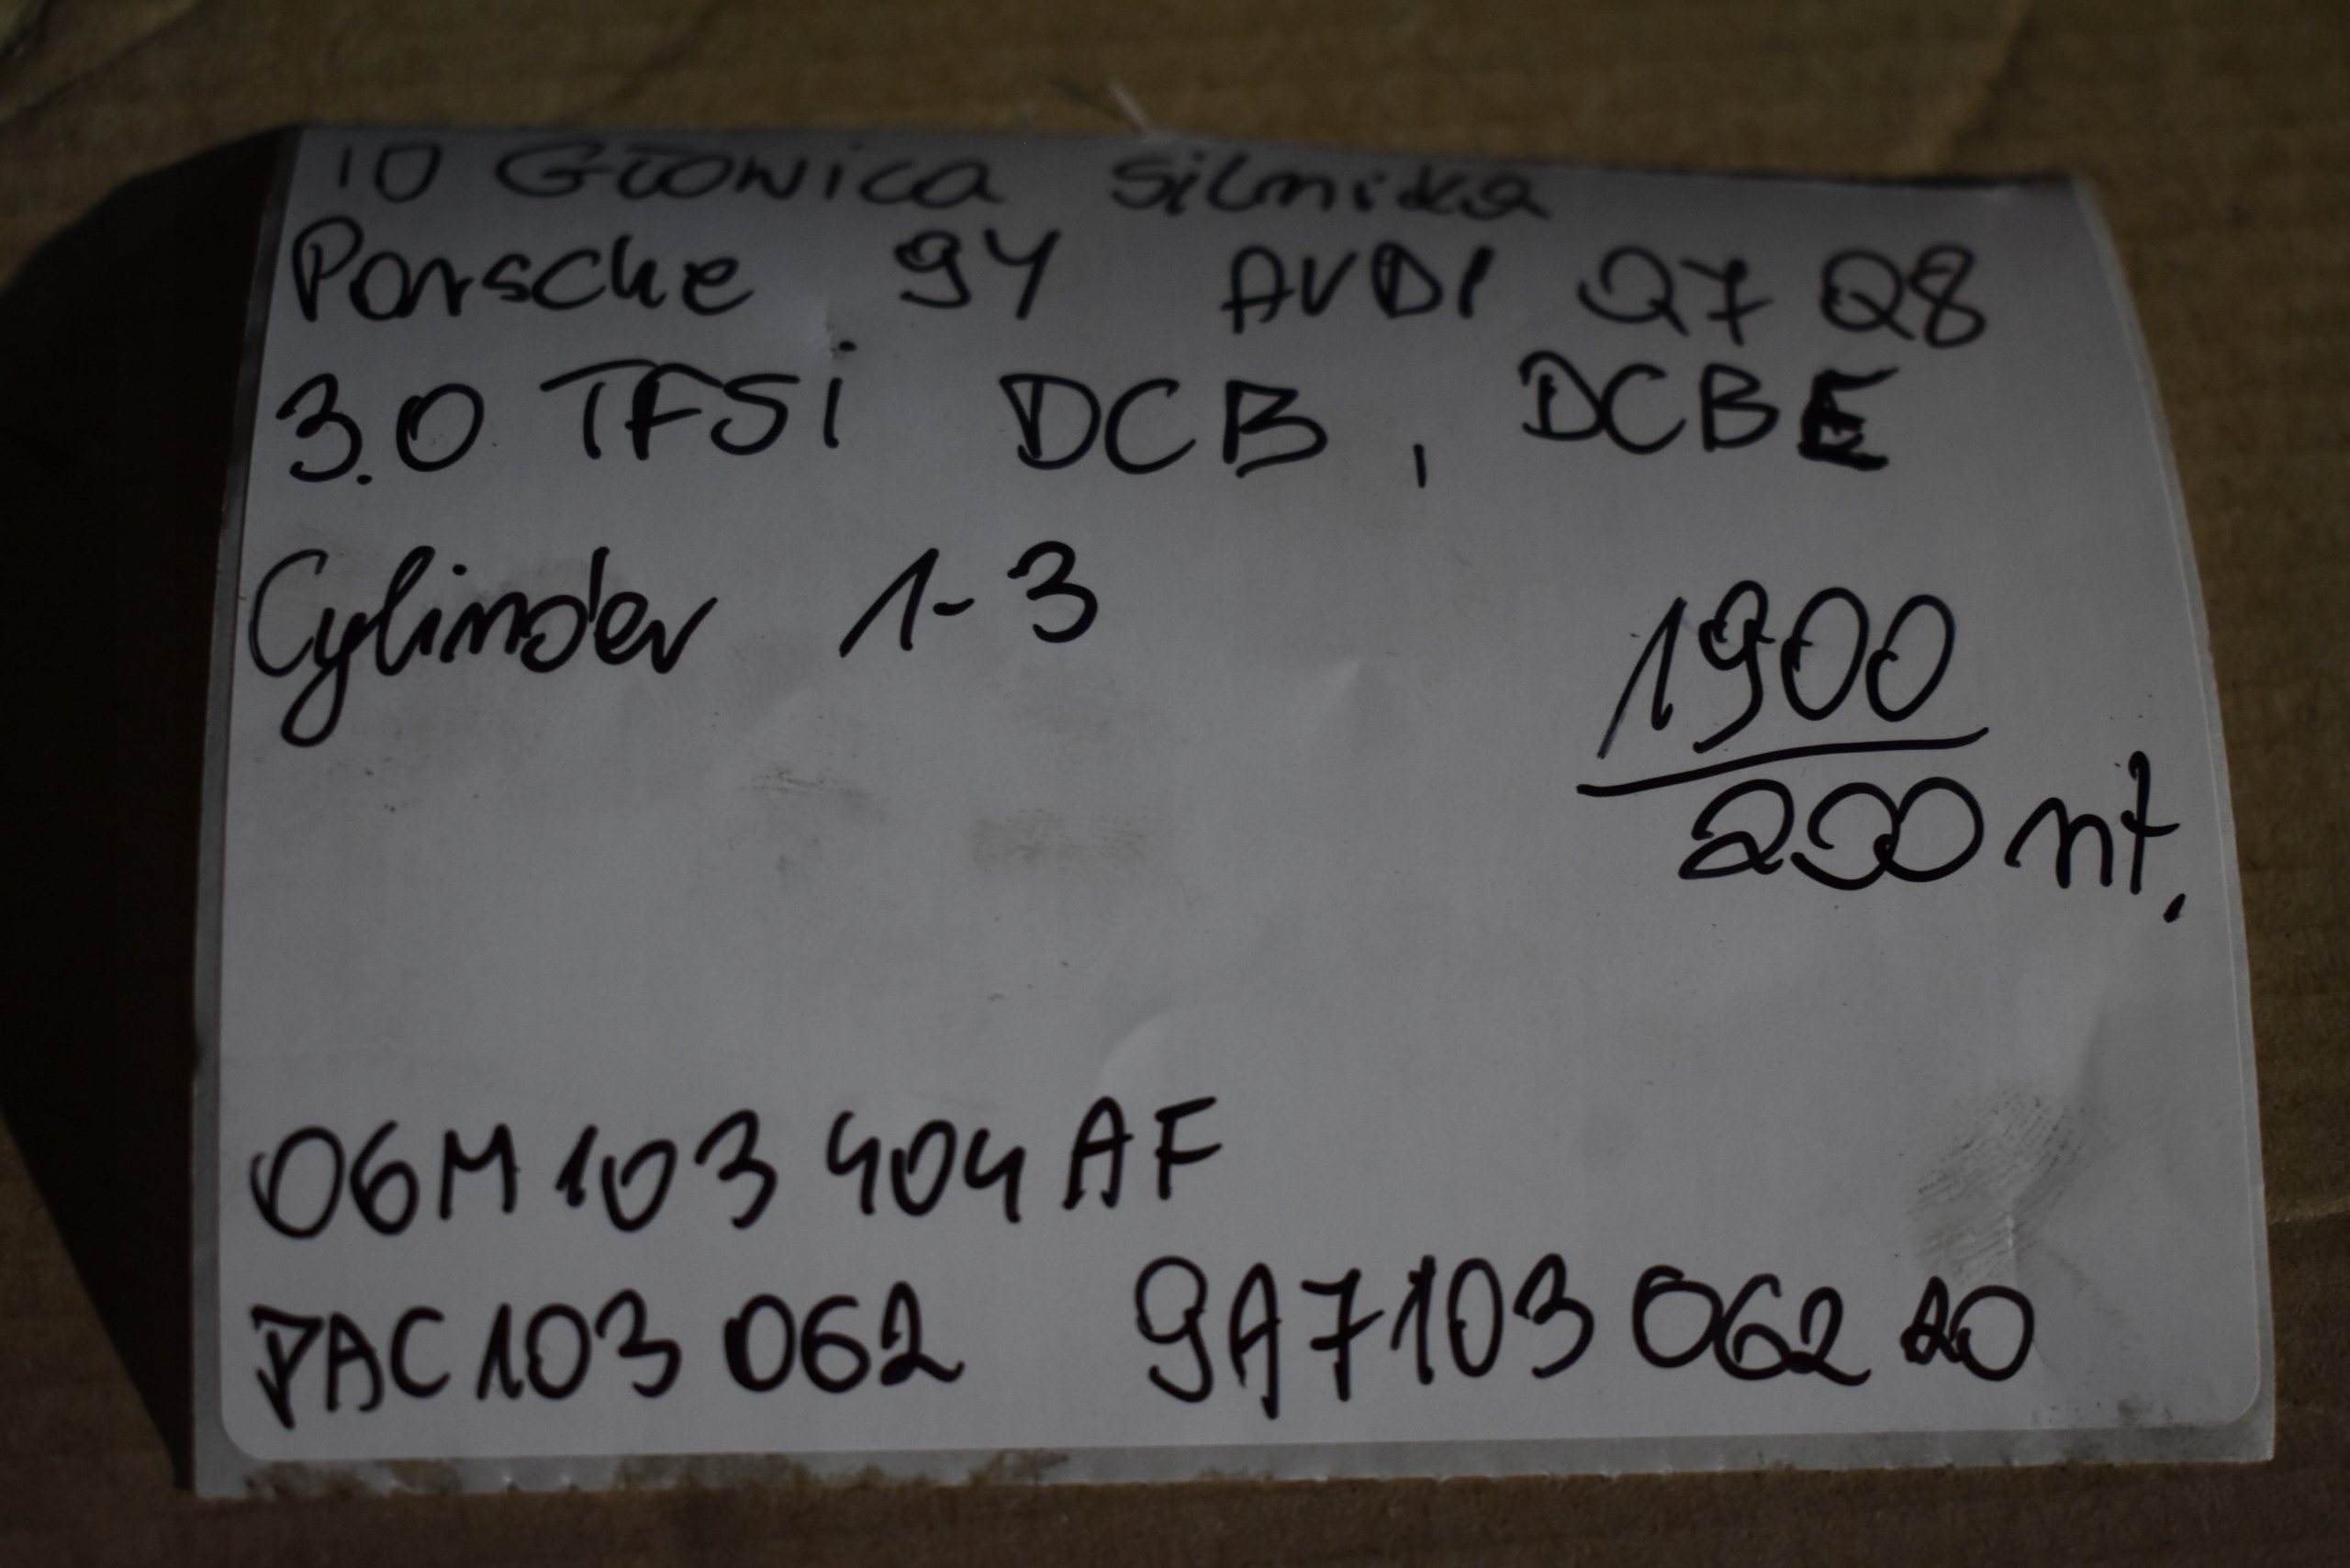 10 Głowica silnika
Porsche 9Y AUDI Q7 Q8
3.0 TFSi DCB, DCBE
Cylinder 1-3
1900
200 nt.
06M 103 404 AF
PAC 103 062 9A7 103 062 20